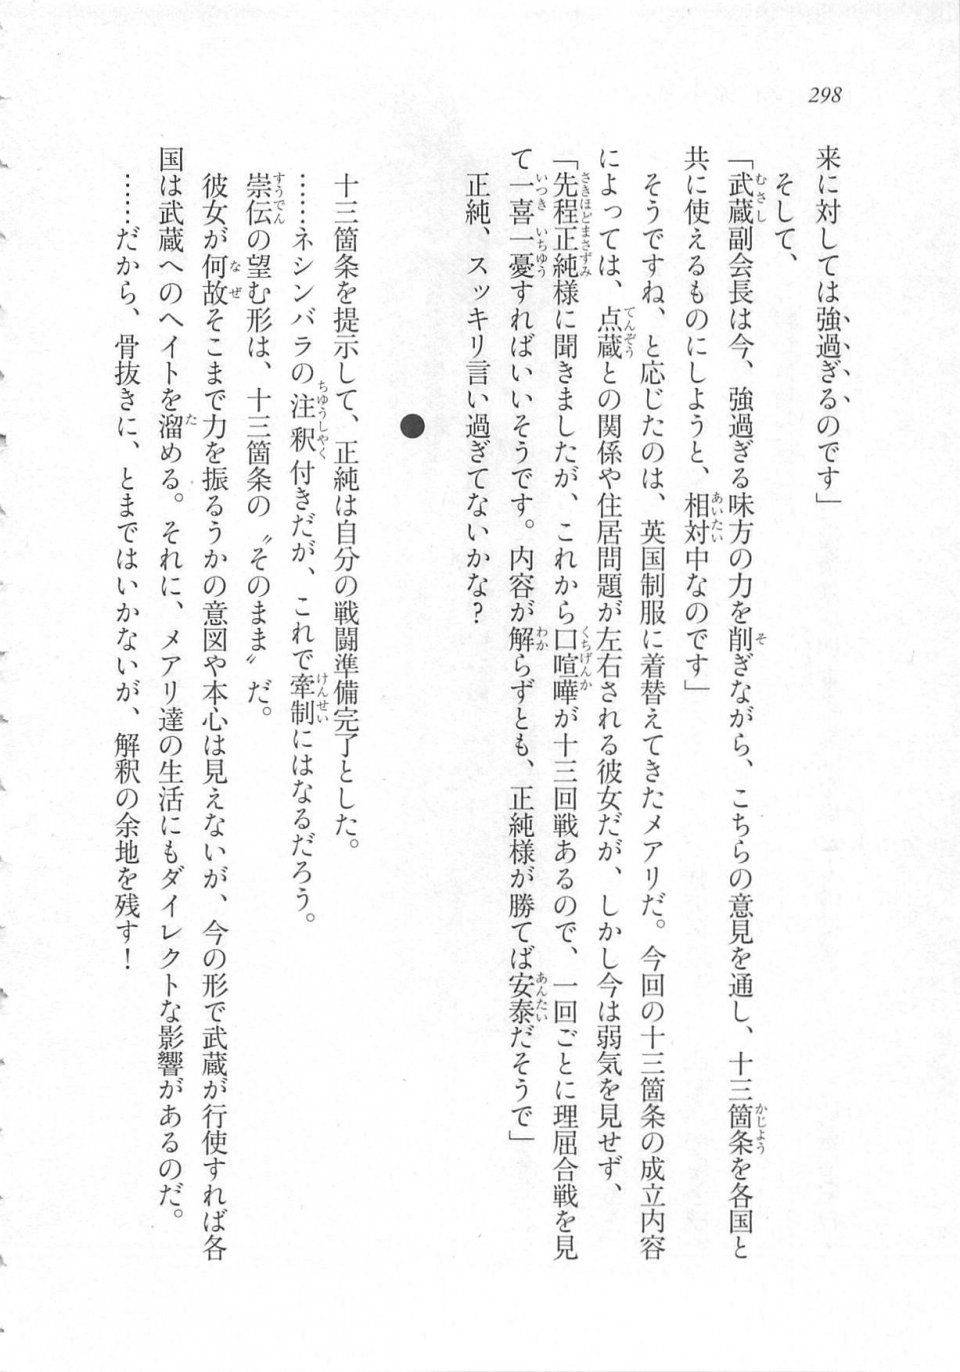 298
来に対しては強過ぎるのです」
そして、
「武蔵副会長は今、強過ぎる味方の力を削ぎながら、こちらの意見を通し、十三箇条を各国と
共に使えるものにしようと、相対中なのです」
そうですね、と応じたのは、英国制服に着替えてきたメアリだ。今回の十三箇条の成立内容
によっては、点蔵との関係や住居問題が左右される彼女だが、しかし今は弱気を見せず、
「先程正純様に聞きましたが、これから口喧嘩が十三回戦あるので、一回ごとに理屈合戦を見
て一喜一憂すればいいそうです。内容が解らずとも、正純様が勝てば安泰だそうで」
正純、スッキリ言い過ぎてないかな？
●
十三箇条を提示して、正純は自分の戦闘準備完了とした。
……ネシンバラの注釈付きだが、これで牽制にはなるだろう。
崇伝の望む形は、十三箇条の〝そのまま〟だ。
彼女が何故そこまで力を振るうかの意図や本心は見えないが、今の形で武蔵が行使すれば各
国は武蔵へのヘイトを溜める。それに、メアリ達の生活にもダイレクトな影響があるのだ。
……だから、骨抜きに、とまではいかないが、解釈の余地を残す！